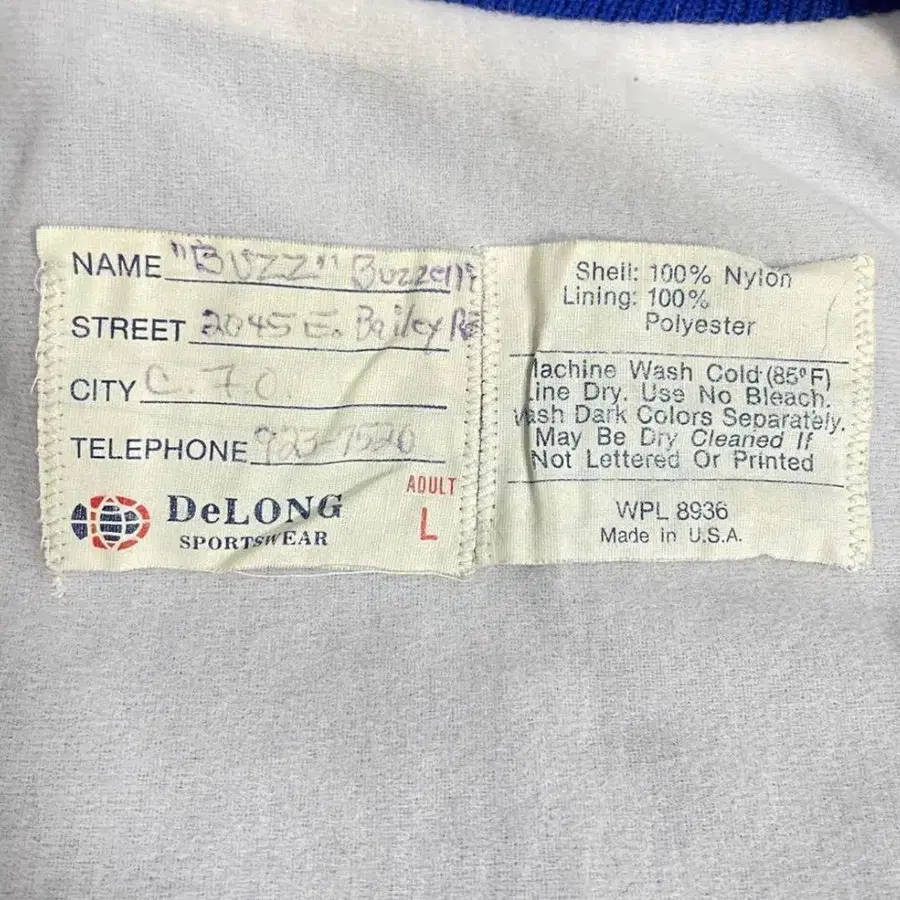 NAME "BUZZ" Buzzelli
STREET 2045 E. Bailey Rd
CITY C. F.
TELEPHONE 923-1520
DeLONG
SPORTSWEAR
ADULT
L
Shell: 100% Nylon
Lining: 100%
Polyester
Machine Wash Cold (85°F)
Line Dry. Use No Bleach.
Wash Dark Colors Separately.
May Be Dry Cleaned If
Not Lettered Or Printed
WPL 8936
Made in U.S.A.